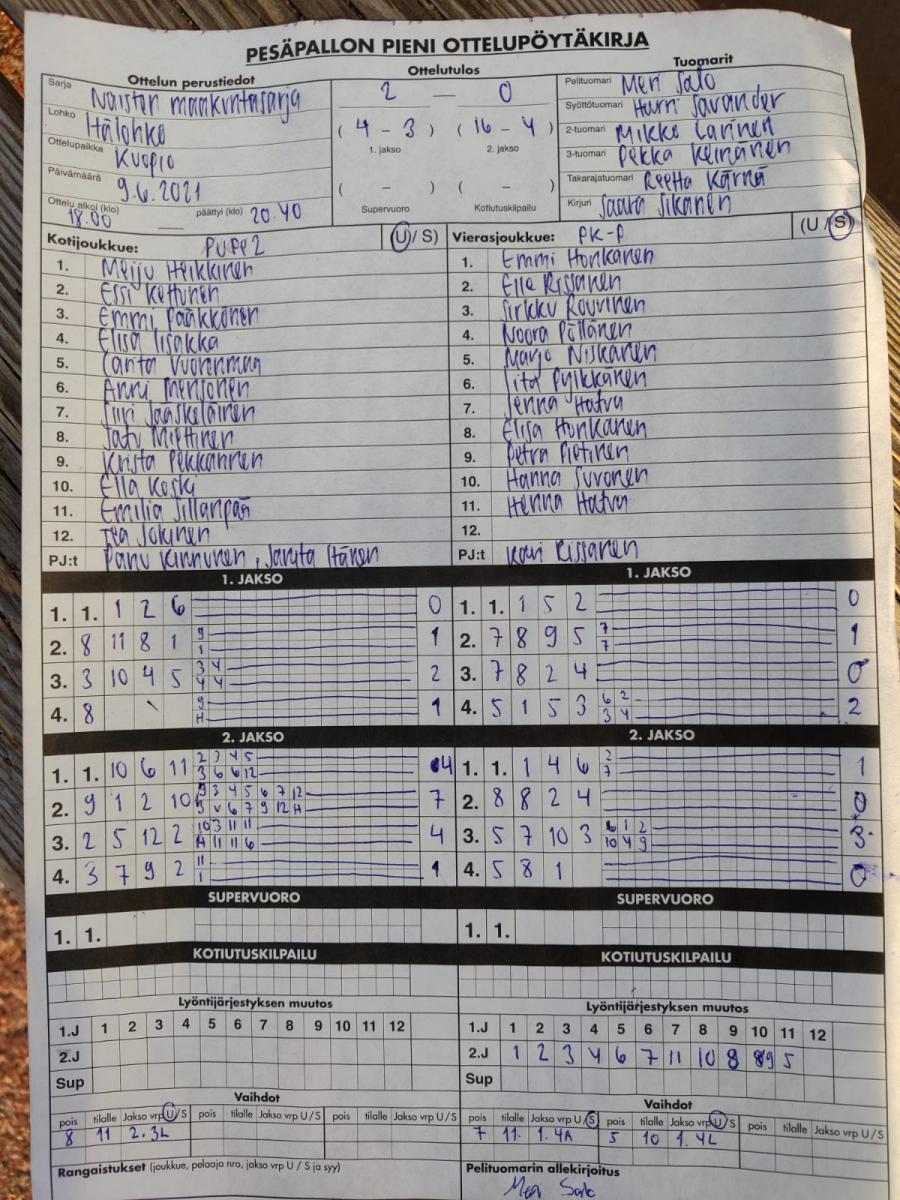 PESÄPALLON PIENI OTTELUPÖYTÄKIRJA
Ottelun perustiedot
Sarja Naisten maakuntasarja
Lohko Itälohko
Ottelupaikka Kuopio
Päivämäärä 9.6.2021
Ottelu alkoi (klo) 18.00 päättyi (klo) 20.40
Ottelutulos
2 – 0
( 4 – 3 ) ( 16 – 4 )
1. jakso 2. jakso
( – ) ( – )
Supervuoro Kotiutuskilpailu
Tuomarit
Pelituomari Meri Salo
Syöttötuomari Harri Savander
2-tuomari Mikko Larinen
3-tuomari Pekka Keinänen
Takarajatuomari Reetta Kärnä
Kirjuri Saara Sikanen
Kotijoukkue: PuPe2 (U/S)
1. Meiju Heikkinen
2. Essi Kettunen
3. Emmi Pääkkönen
4. Elisa Iisakka
5. Lanta Vuorenmaa
6. Anni Mensonen
7. Siiri Jääskeläinen
8. Satu Miettinen
9. Krista Pekkarinen
10. Ella Koski
11. Emilia Sillanpää
12. Tea Jokinen
PJ:t Panu Kinnunen, Sanita Itänen
Vierasjoukkue: PK-P (U/S)
1. Emmi Honkanen
2. Elle Rissanen
3. Sirkku Rouvinen
4. Noora Pöllänen
5. Marjo Niskanen
6. Iita Pylkkänen
7. Jenna Hatva
8. Elisa Honkanen
9. Petra Pietinen
10. Hanna Suvonen
11. Henna Hatva
12.
PJ:t Kari Rissanen
1. JAKSO
1. 1. 1 2 6 0
2. 8 11 8 1 9 1 1
3. 3 10 4 5 3 4 4 4 2
4. 8 9 H 1
1. JAKSO
1. 1. 1 5 2 0
2. 7 8 9 5 7 7 1
3. 7 8 2 4 0
4. 5 1 5 3 6 2 3 4 2
2. JAKSO
1. 1. 10 6 11 2 3 4 5 3 6 6 12 4
2. 9 1 2 10 3 4 5 6 7 12 6 7 9 12 H 7
3. 2 5 12 2 10 3 11 11 H 11 11 6 4
4. 3 7 9 2 11 1 1
2. JAKSO
1. 1. 1 4 6 2 7 1
2. 8 8 2 4 0
3. 5 7 10 3 6 1 2 10 4 9 3
4. 5 8 1 0
SUPERVUORO
1. 1.
SUPERVUORO
1. 1.
KOTIUTUSKILPAILU
KOTIUTUSKILPAILU
Lyöntijärjestyksen muutos
1.J 1 2 3 4 5 6 7 8 9 10 11 12
2.J
Sup
Lyöntijärjestyksen muutos
1.J 1 2 3 4 5 6 7 8 9 10 11 12
2.J 1 2 3 4 6 7 11 10 8 9 5
Sup
Vaihdot
pois tilalle Jakso vrp U/S pois tilalle Jakso vrp U/S pois tilalle Jakso vrp U/S
8 11 2.3L
Vaihdot
pois tilalle Jakso vrp U/S pois tilalle Jakso vrp U/S pois tilalle Jakso vrp U/S
7 11 1.4A 5 10 1.4L
Rangaistukset (joukkue, pelaaja nro, jakso vrp U / S ja syy)
Pelituomarin allekirjoitus
Meri Salo